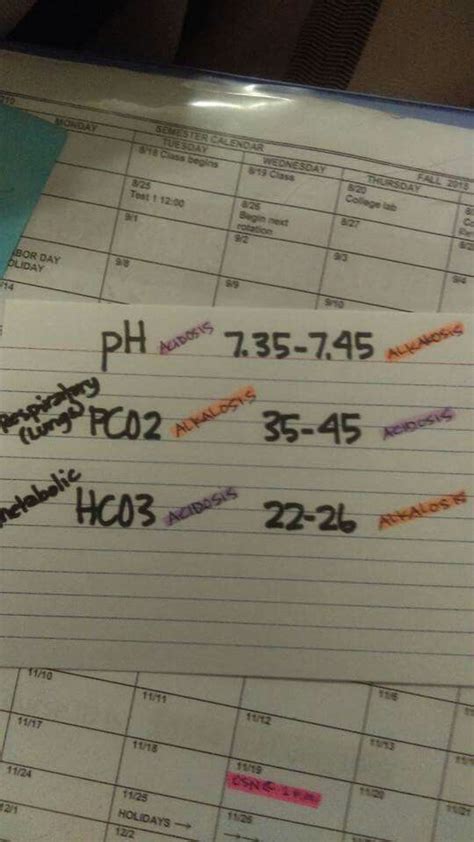 SEMESTER CALENDAR
MONDAY TUESDAY WEDNESDAY THURSDAY FALL 2015
8/18 Class begins 8/19 Class 8/20 College lab
8/25 Test 1 12:00 8/26 Begin next rotation 8/27
9/1 9/2 9/3 9/4
ABOR DAY
OLIDAY
9/8 9/9 9/10
/14
pH ACIDOSIS 7.35-7.45 ALKALOSIS
Respiratory (Lungs) PCO2 ALKALOSIS 35-45 ACIDOSIS
metabolic HCO3 ACIDOSIS 22-26 ALKALOSIS
11/10 11/11 11/12 11/13
11/17 11/18 11/19 11/20
11/24 11/25
HOLIDAYS →
12/1 12/2